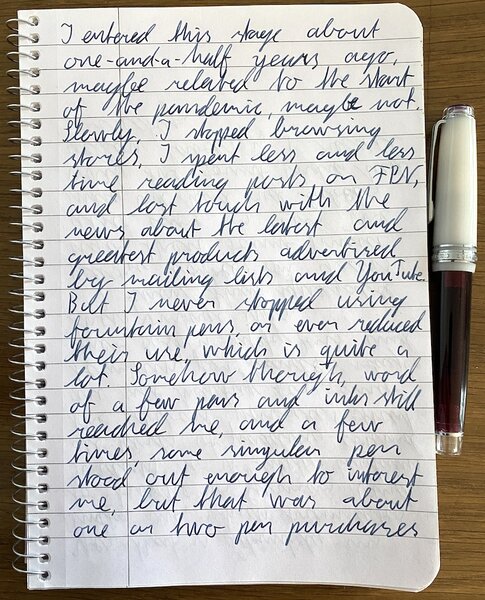 I entered this stage about
one-and-a-half years ago,
maybe related to the start
of the pandemic, maybe not.
Slowly, I stopped browsing
stores, I spent less and less
time reading posts on FPN,
and lost touch with the
news about the latest and
greatest products advertised
by mailing lists and YouTube.
But I never stopped using
fountain pens, or even reduced
their use, which is quite a
lot. Somehow though, word
of a few pens and inks still
reached me, and a few
times some singular pen
stood out enough to interest
me, but that was about
one or two pen purchases